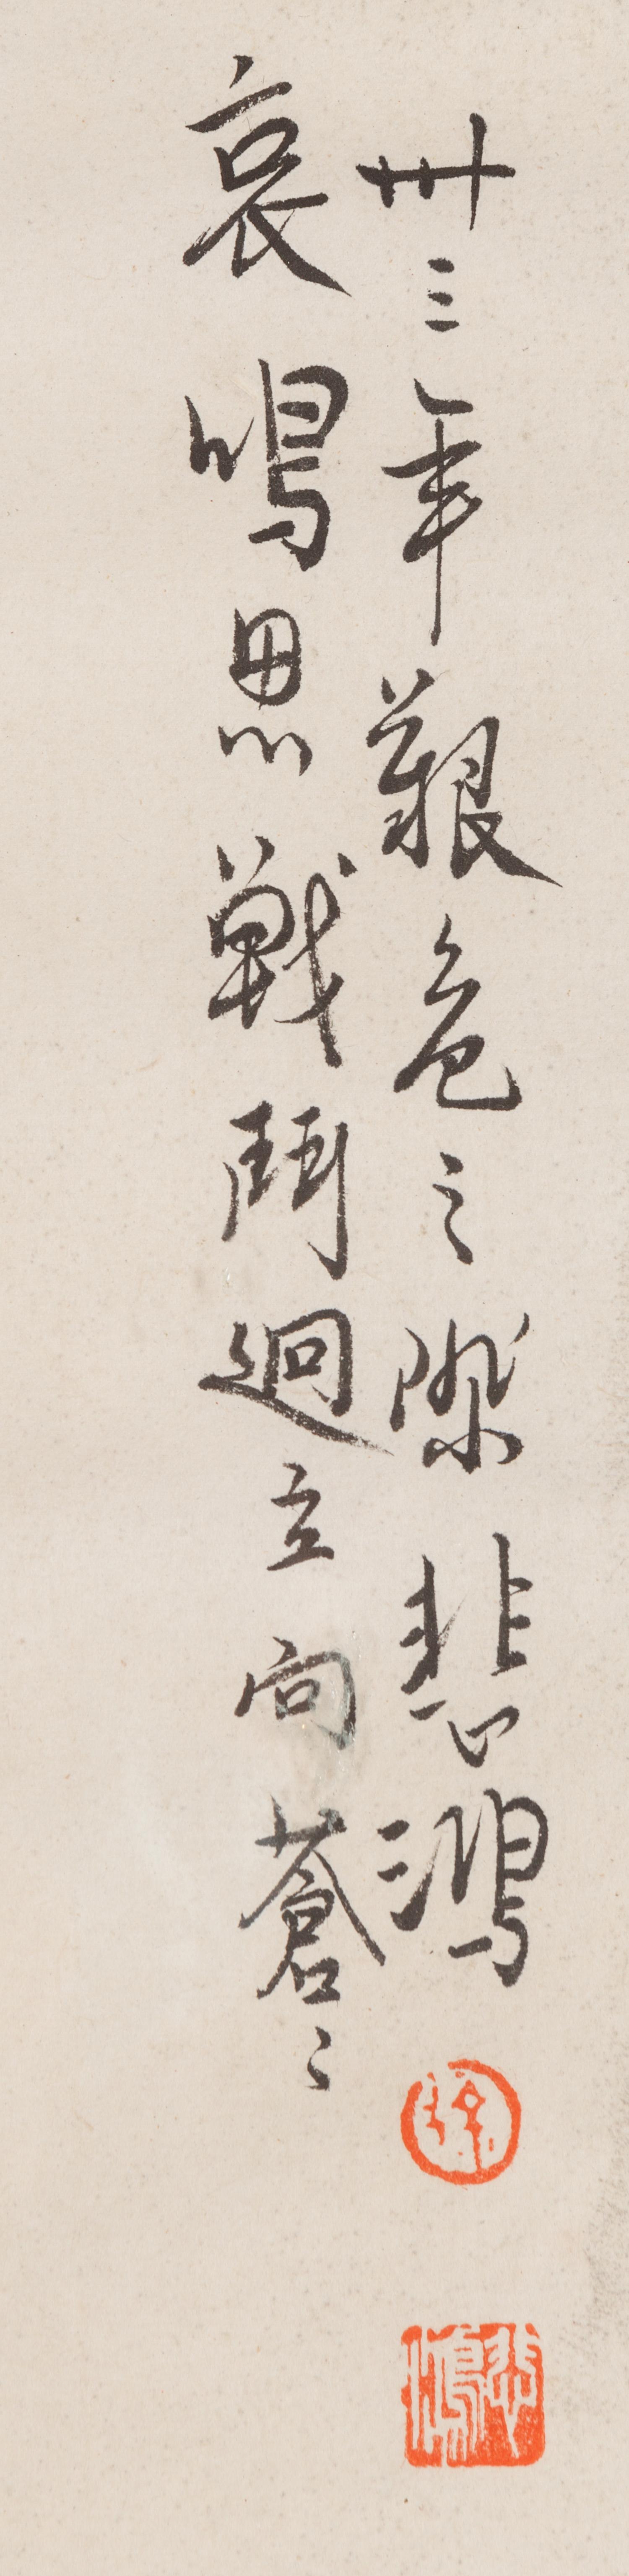 哀鳴思戰鬥迥立向蒼々
卅三年艱危之際悲鴻
徐
悲鴻